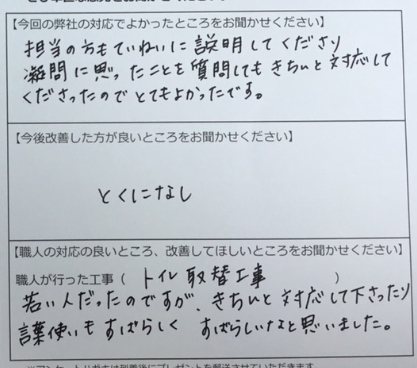 【今回の弊社の対応でよかったところをお聞かせください】
担当の方もていねいに説明してくださり
凝問に思ったことを質問してもきちんと対応して
くださったのでとてもよかったです。
【今後改善した方が良いところをお聞かせください】
とくになし
【職人の対応の良いところ、改善してほしいところをお聞かせください】
職人が行った工事（ トイレ取替工事 ）
若い人だったのですが、きちんと対応して下さったり
言葉使いもすばらしく すばらしいなと思いました。